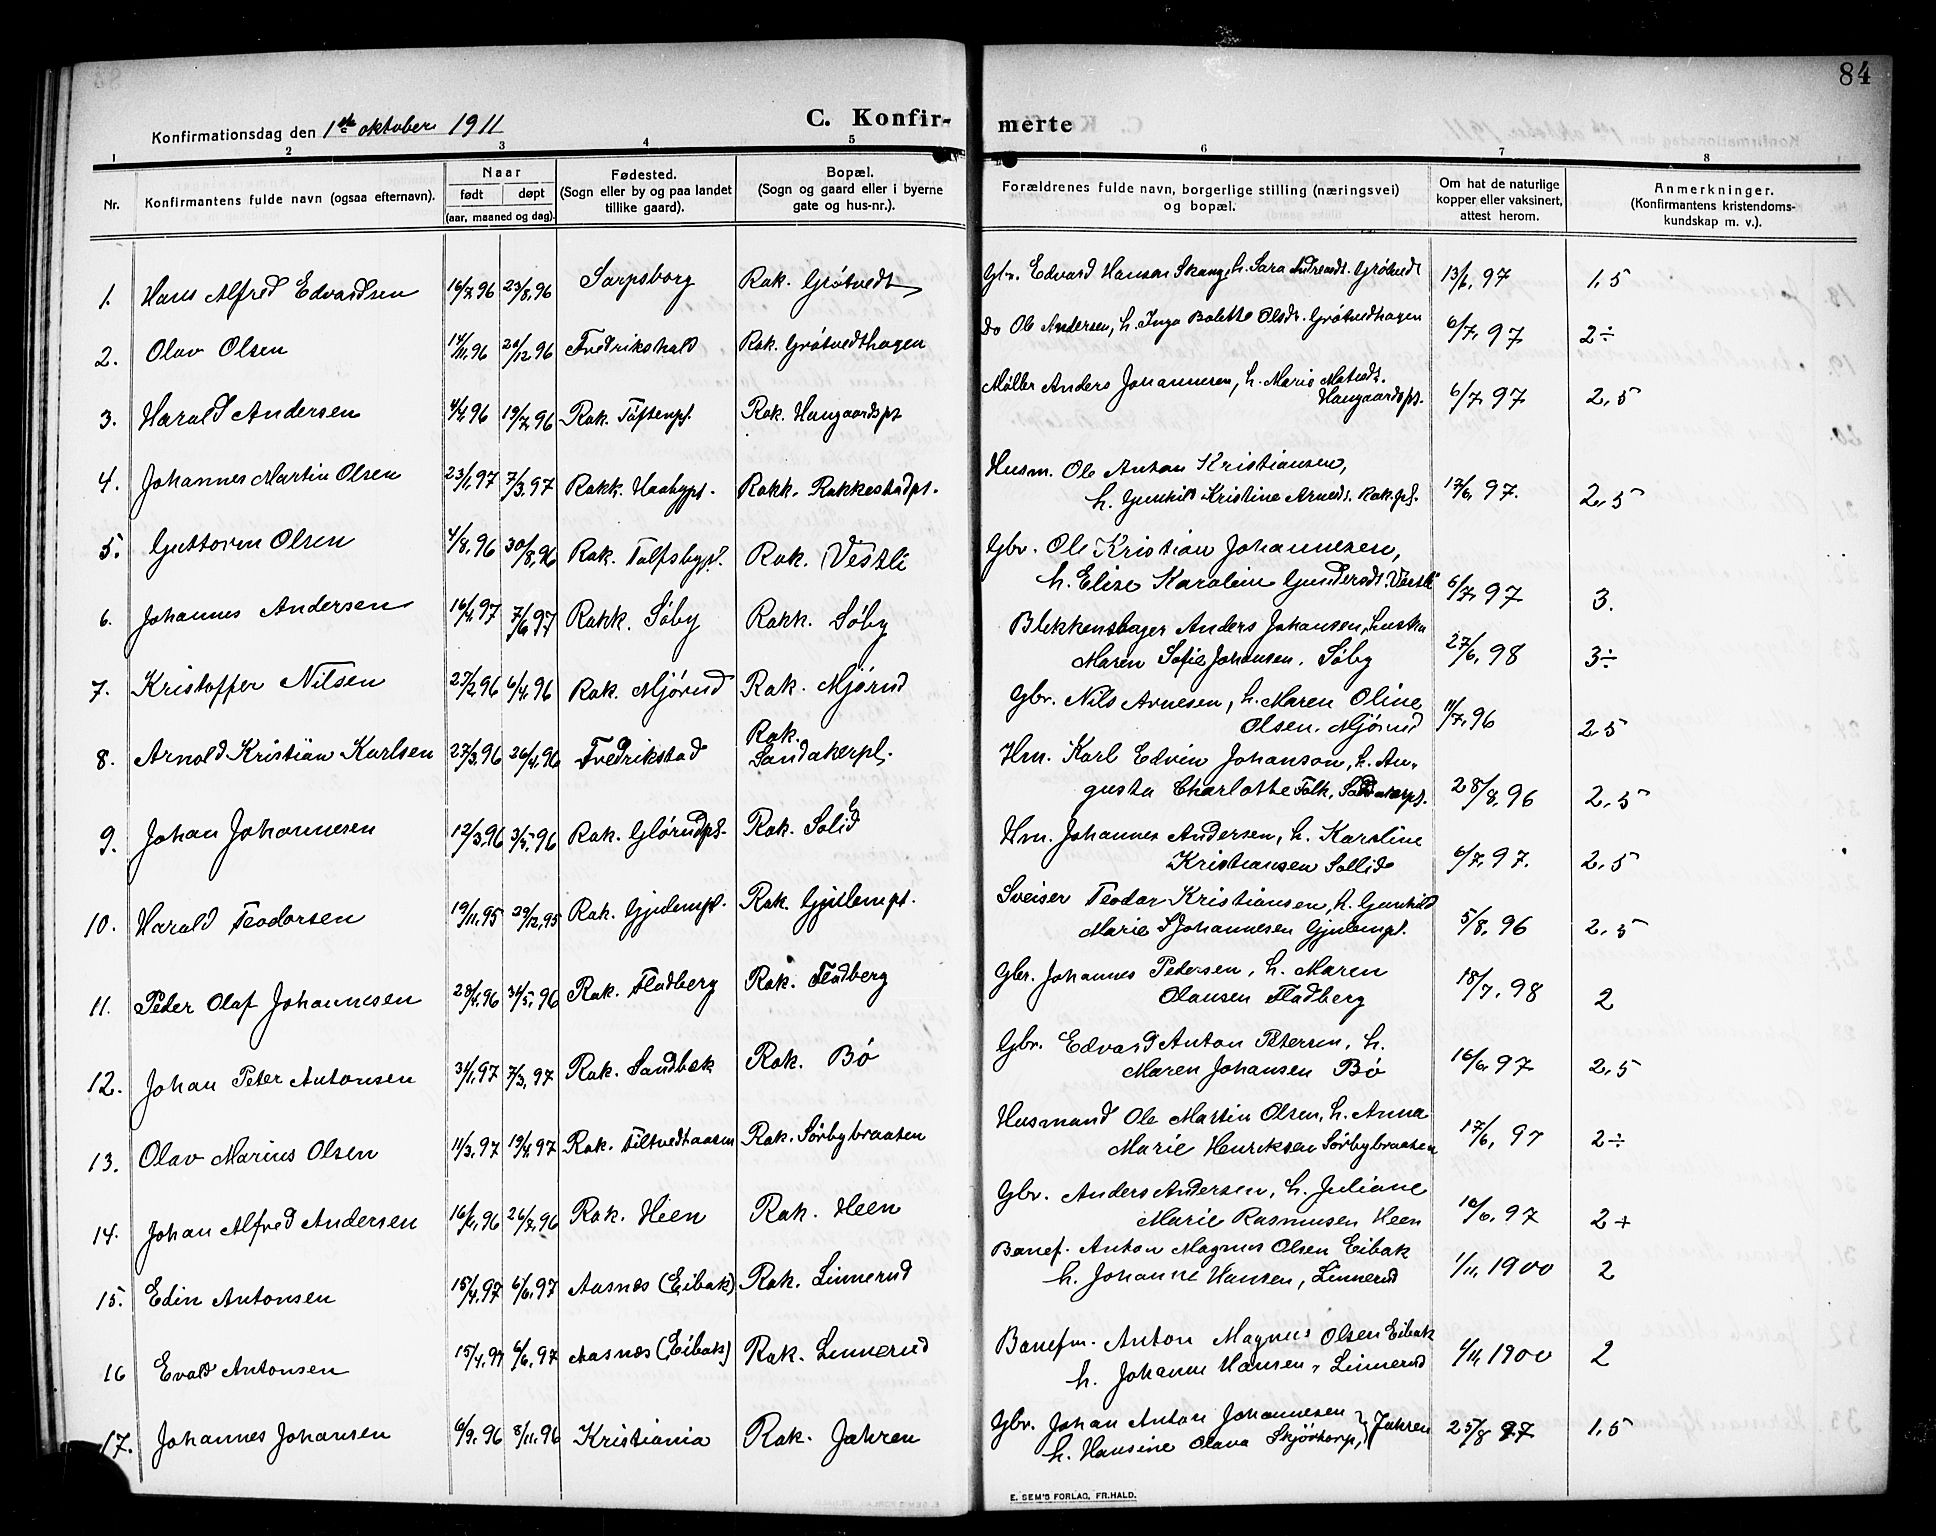 84
Konfirmationsdag den 1ste oktober 1911
C. Konfir- merte
1 2 3 4 5 6 7 8
Nr. Konfirmantens fulde navn (ogsaa efternavn). Naar født døpt (aar, maaned og dag). Fødested. (Sogn eller by og paa landet tillike gaard). Bopæl. (Sogn og gaard eller i byerne gate og hus-nr.). Forældrenes fulde navn, borgerlige stilling (næringsvei) og bopæl. Om hat de naturlige kopper eller vaksinert, attest herom. Anmerkninger. (Konfirmantens kristendoms- kundskap m. v.).
1. Hans Alfred Edvardsen 16/7.96 23/8.96 Sarpsborg Rak. Grøtvedt Gbr. Edvard Hansen h. Sara Grøtvedt 13/6.97 1,5
2. Olav Olsen 14/11.96 26/12.96 Fredrikshald Rak. Grøtvedthagen Do Ole Andersen, h. Inga Bolette Olsdt. Grøtvedhagen 6/7.97 2÷
3. Harald Andersen 4/4.96 19/7.96 Rak. Tøftenpl. Rak. Haugaardspl Møller Anders Johannesen, h. Marie
Haugaardspl. 6/7.97 2,5
4. Johannes Martin Olsen 23/1.97 7/3.97 Rakk. Haabypl. Rakk. Rakkestadpl. Husm. Ole Anton Kristiansen,
h. Gunhild Kristine Arnedt. Rak.pl. 17/6.97. 2,5
5. Guttorm Olsen 4/8.96 30/8.96 Rak. Rak. Vestli Gbr. Ole Kristian Johannesen,
h. Elise Karoline Gundersdt. Vestli 6/7.97 3.
6. Johannes Andersen 16/4.97 7/6.97 Rakk. Søby Rakk. Søby Blikkenslager Anders Johansen, hustru
Maren Sofie Johansen. Søby 27/6.98 3÷
7. Kristoffer Nilsen 27/2.96 6/4.96 Rak. Mjørud Rak. Mjørud Gbr. Nils Arnesen, h. Maren Oline
Olsen. Mjørud 11/7.96 2,5
8. Arnold Kristian Karlsen 27/3.96 26/4.96 Fredrikstad Rak. Sandakerpl. Hm. Karl Edvin Johanson, h. Au-
gusta Charlotte Falk, Sandakerpl. 28/8.96 2,5
9. Johan Johannesen 12/3.96 3/5.96 Rak. Glørudpl. Rak. Solid Hm. Johannes Andersen, h. Karoline
Kristiansen Sollid 6/7.97. 2,5
10. Harald Teodorsen 19/11.95 29/12.95 Rak. Gjulempl. Rak. Gjulempl. Sveiser Teodor Kristiansen, h. Gunhild
Marie Johannesen Gjulempl. 5/8.96 2,5
11. Peder Olaf Johannesen 28/4.96 31/5.96 Rak. Fladberg Rak. Fladberg Gbr. Johannes Pedersen, h. Maren
Olausen Fladberg 18/7.98 2
12. Johan Peter Antonsen 31/1.97 7/3.97 Rak. Sandbæk Rak. Bø Gbr. Edvard Anton Petersen, h.
Maren Johansen Bø 16/6.97 2,5
13. Olav Marius Olsen 11/3.97 19/4.97 Rak. Tiltvedtaasen Rak. Sørbybraaten Husmand Ole Martin Olsen, h. Anna
Marie Henriksen Sørbybraaten 17/6.97 2÷
14. Johan Alfred Andersen 16/6.96 26/7.96 Rak. Heen Rak. Heen Gbr. Anders Andersen, h. Juliane
Marie Rasmusen Heen 16/6.97 2+
15. Edin Antonsen 15/4.97 6/6.97 Aasnes (Eibak) Rak. Linnerud Banef. Anton Magnus Olsen Eibak
h. Johanne Hansen, Linnerud 1/11.1900 2
16 Evald Antonsen 15/4.97 6/6.97 Aasnes (Eibak) Rak. Linnerud Banefm. Anton Magnus Olsen Eibak
h. Johanne Hansen, Linnerud 1/11.1900 2
17. Johannes Johansen 6/9.96 8/11.96 Kristiania Rak. Jahren Gbr. Johan Anton Johannesen
h. Hansine Olava Skjørtorp, } Jahren 25/8 97 1,5
E. SEM'S FORLAG, FR.HALD.